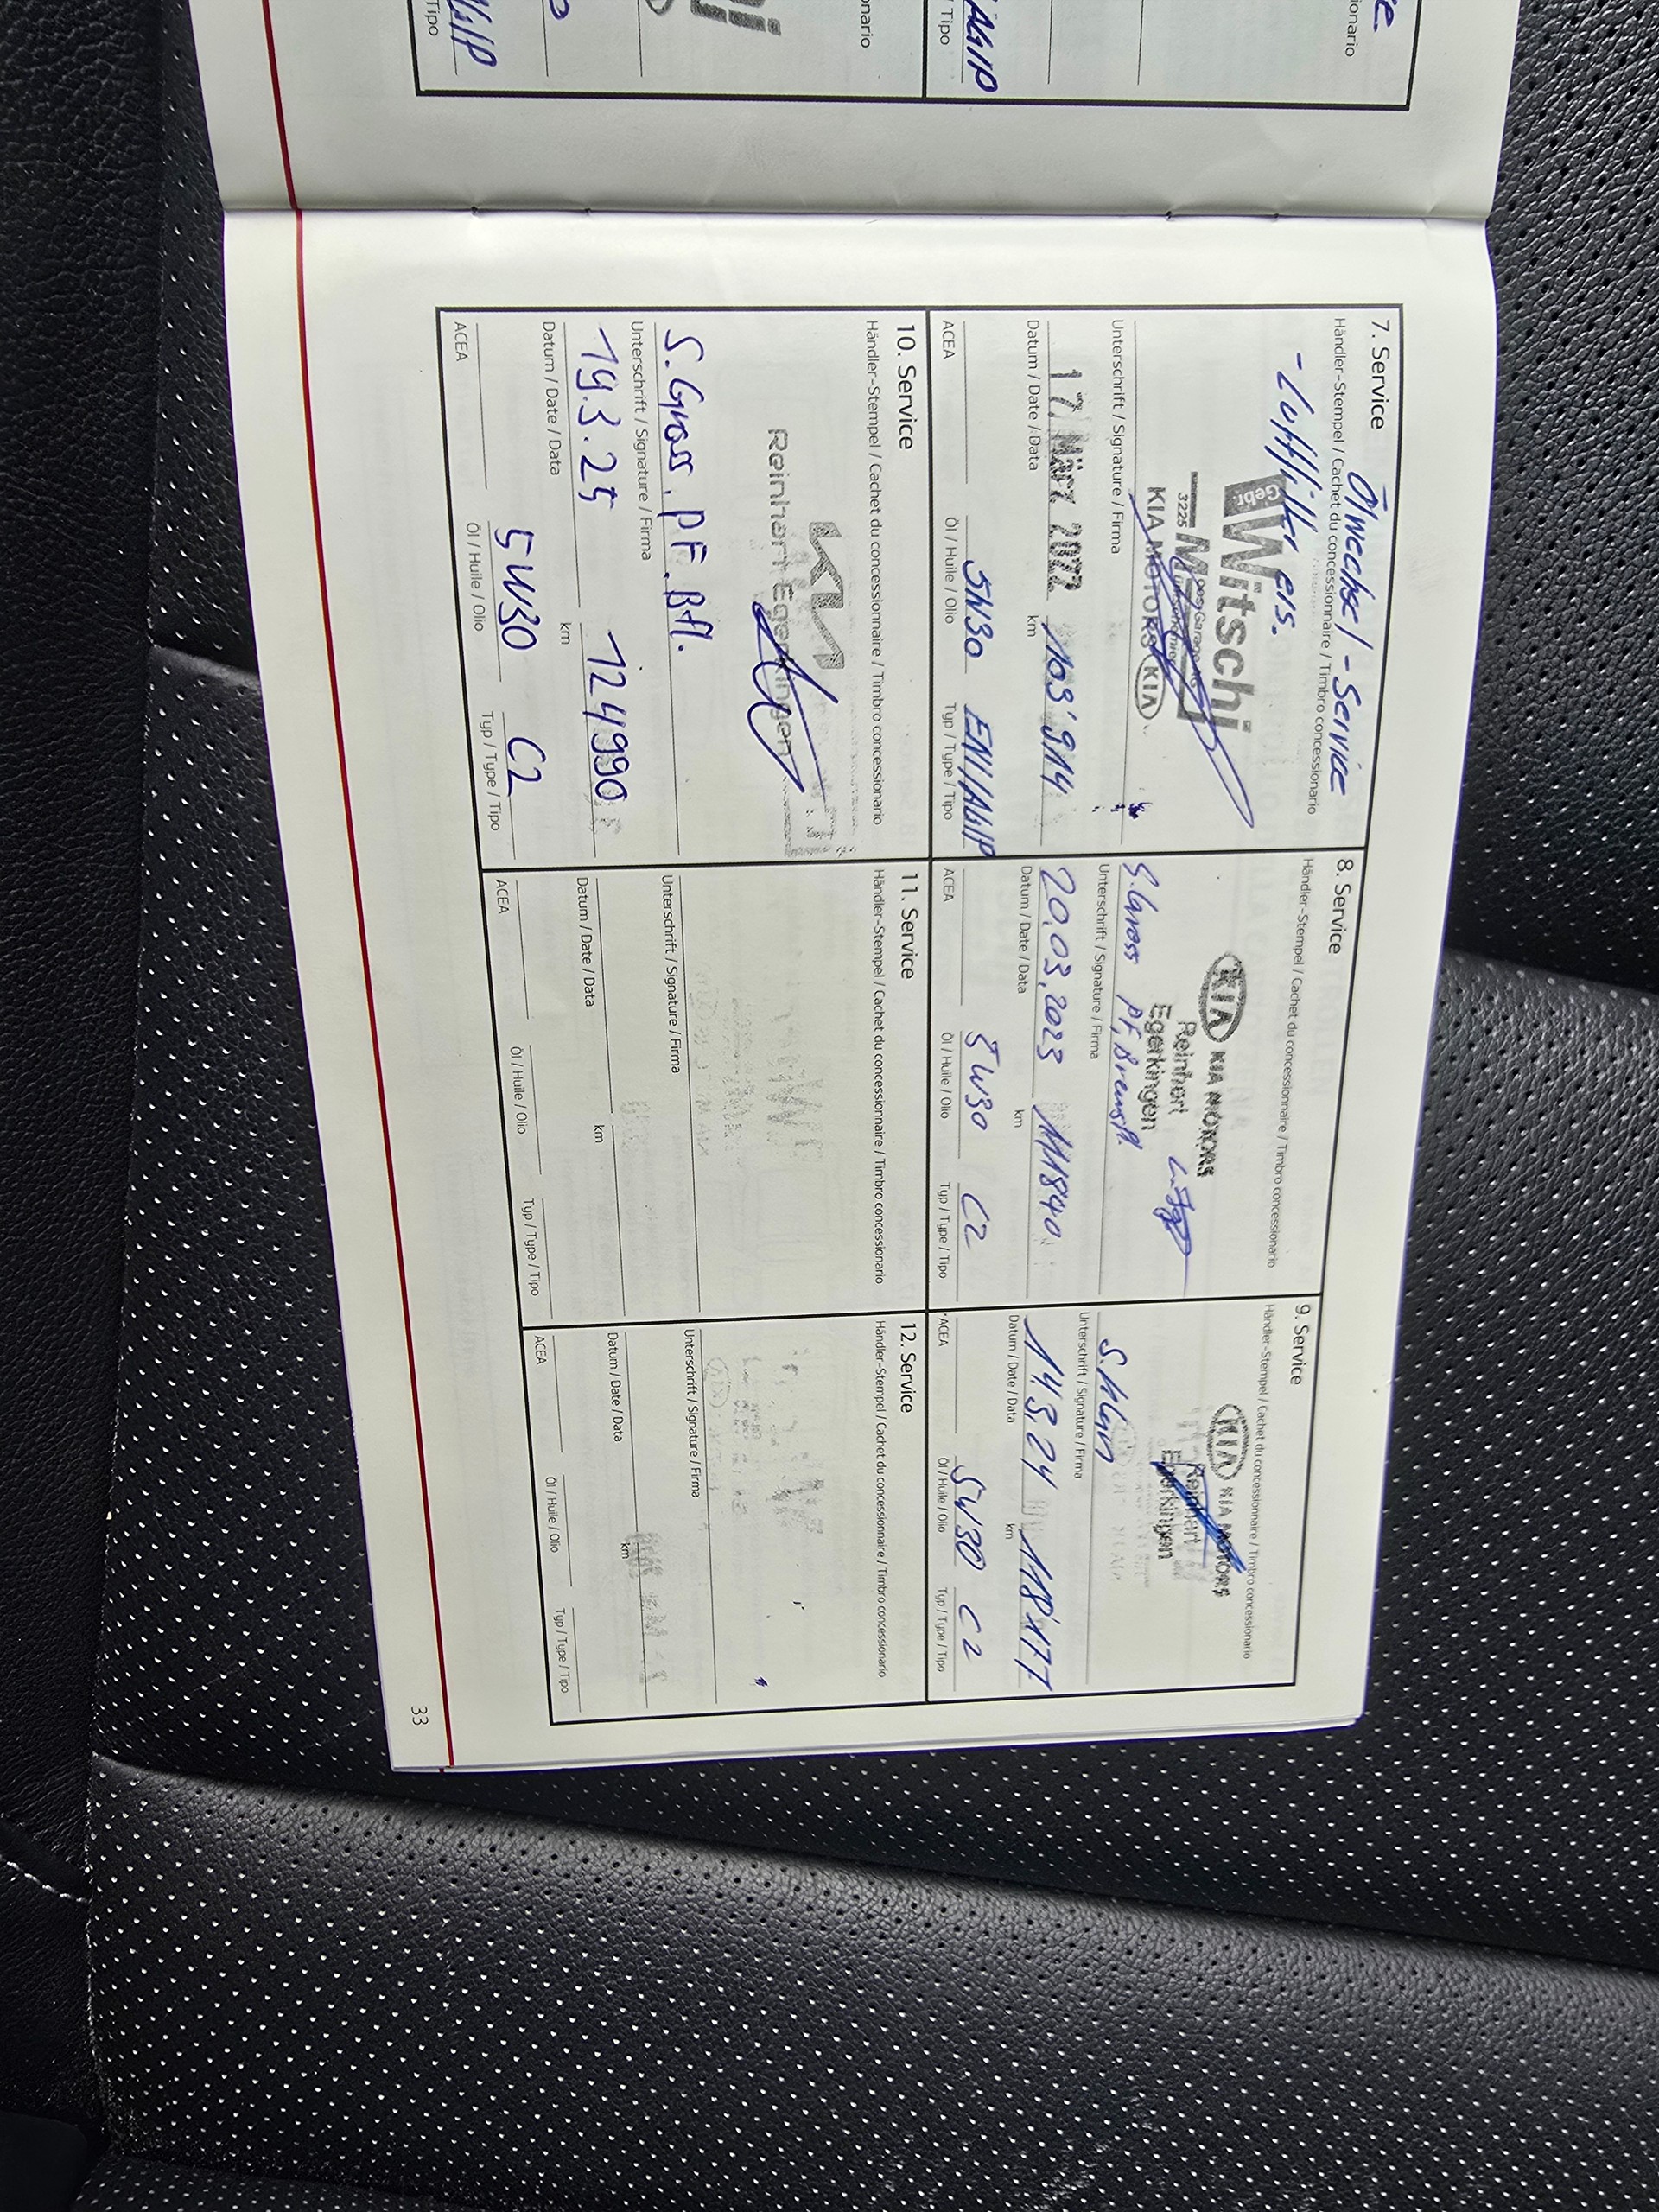 7. Service
Händler-Stempel / Cachet du concessionnaire / Timbro concessionario
Ölwechsel-Service
- Luftfilter ers.
Gebr. Witschi
3225 Müntschemier
KIA MOTORS KIA
Unterschrift / Signature / Firma
17. März 2022 103'914
Datum / Date / Data km
5W30 ENI/AGIP
ACEA Öl / Huile / Olio Typ / Type / Tipo
8. Service
Händler-Stempel / Cachet du concessionnaire / Timbro concessionario
KIA KIA MOTORS
Reinhart
Egerkingen
S. Gross PF, Bremsfl.
Unterschrift / Signature / Firma
20.03.2023 111840
Datum / Date / Data km
5W30 C2
ACEA Öl / Huile / Olio Typ / Type / Tipo
9. Service
Händler-Stempel / Cachet du concessionnaire / Timbro concessionario
KIA KIA MOTORS
Reinhart
Egerkingen
Unterschrift / Signature / Firma
14.3.24 118'177
Datum / Date / Data km
5W30 C2
ACEA Öl / Huile / Olio Typ / Type / Tipo
10. Service
Händler-Stempel / Cachet du concessionnaire / Timbro concessionario
KIA
Reinhart Egerkingen
S. Gross, PF. Bfl.
Unterschrift / Signature / Firma
19.3.25 124990
Datum / Date / Data km
5W30 C2
ACEA Öl / Huile / Olio Typ / Type / Tipo
11. Service
Händler-Stempel / Cachet du concessionnaire / Timbro concessionario
Unterschrift / Signature / Firma
Datum / Date / Data km
ACEA Öl / Huile / Olio Typ / Type / Tipo
12. Service
Händler-Stempel / Cachet du concessionnaire / Timbro concessionario
Unterschrift / Signature / Firma
Datum / Date / Data km
ACEA Öl / Huile / Olio Typ / Type / Tipo
33